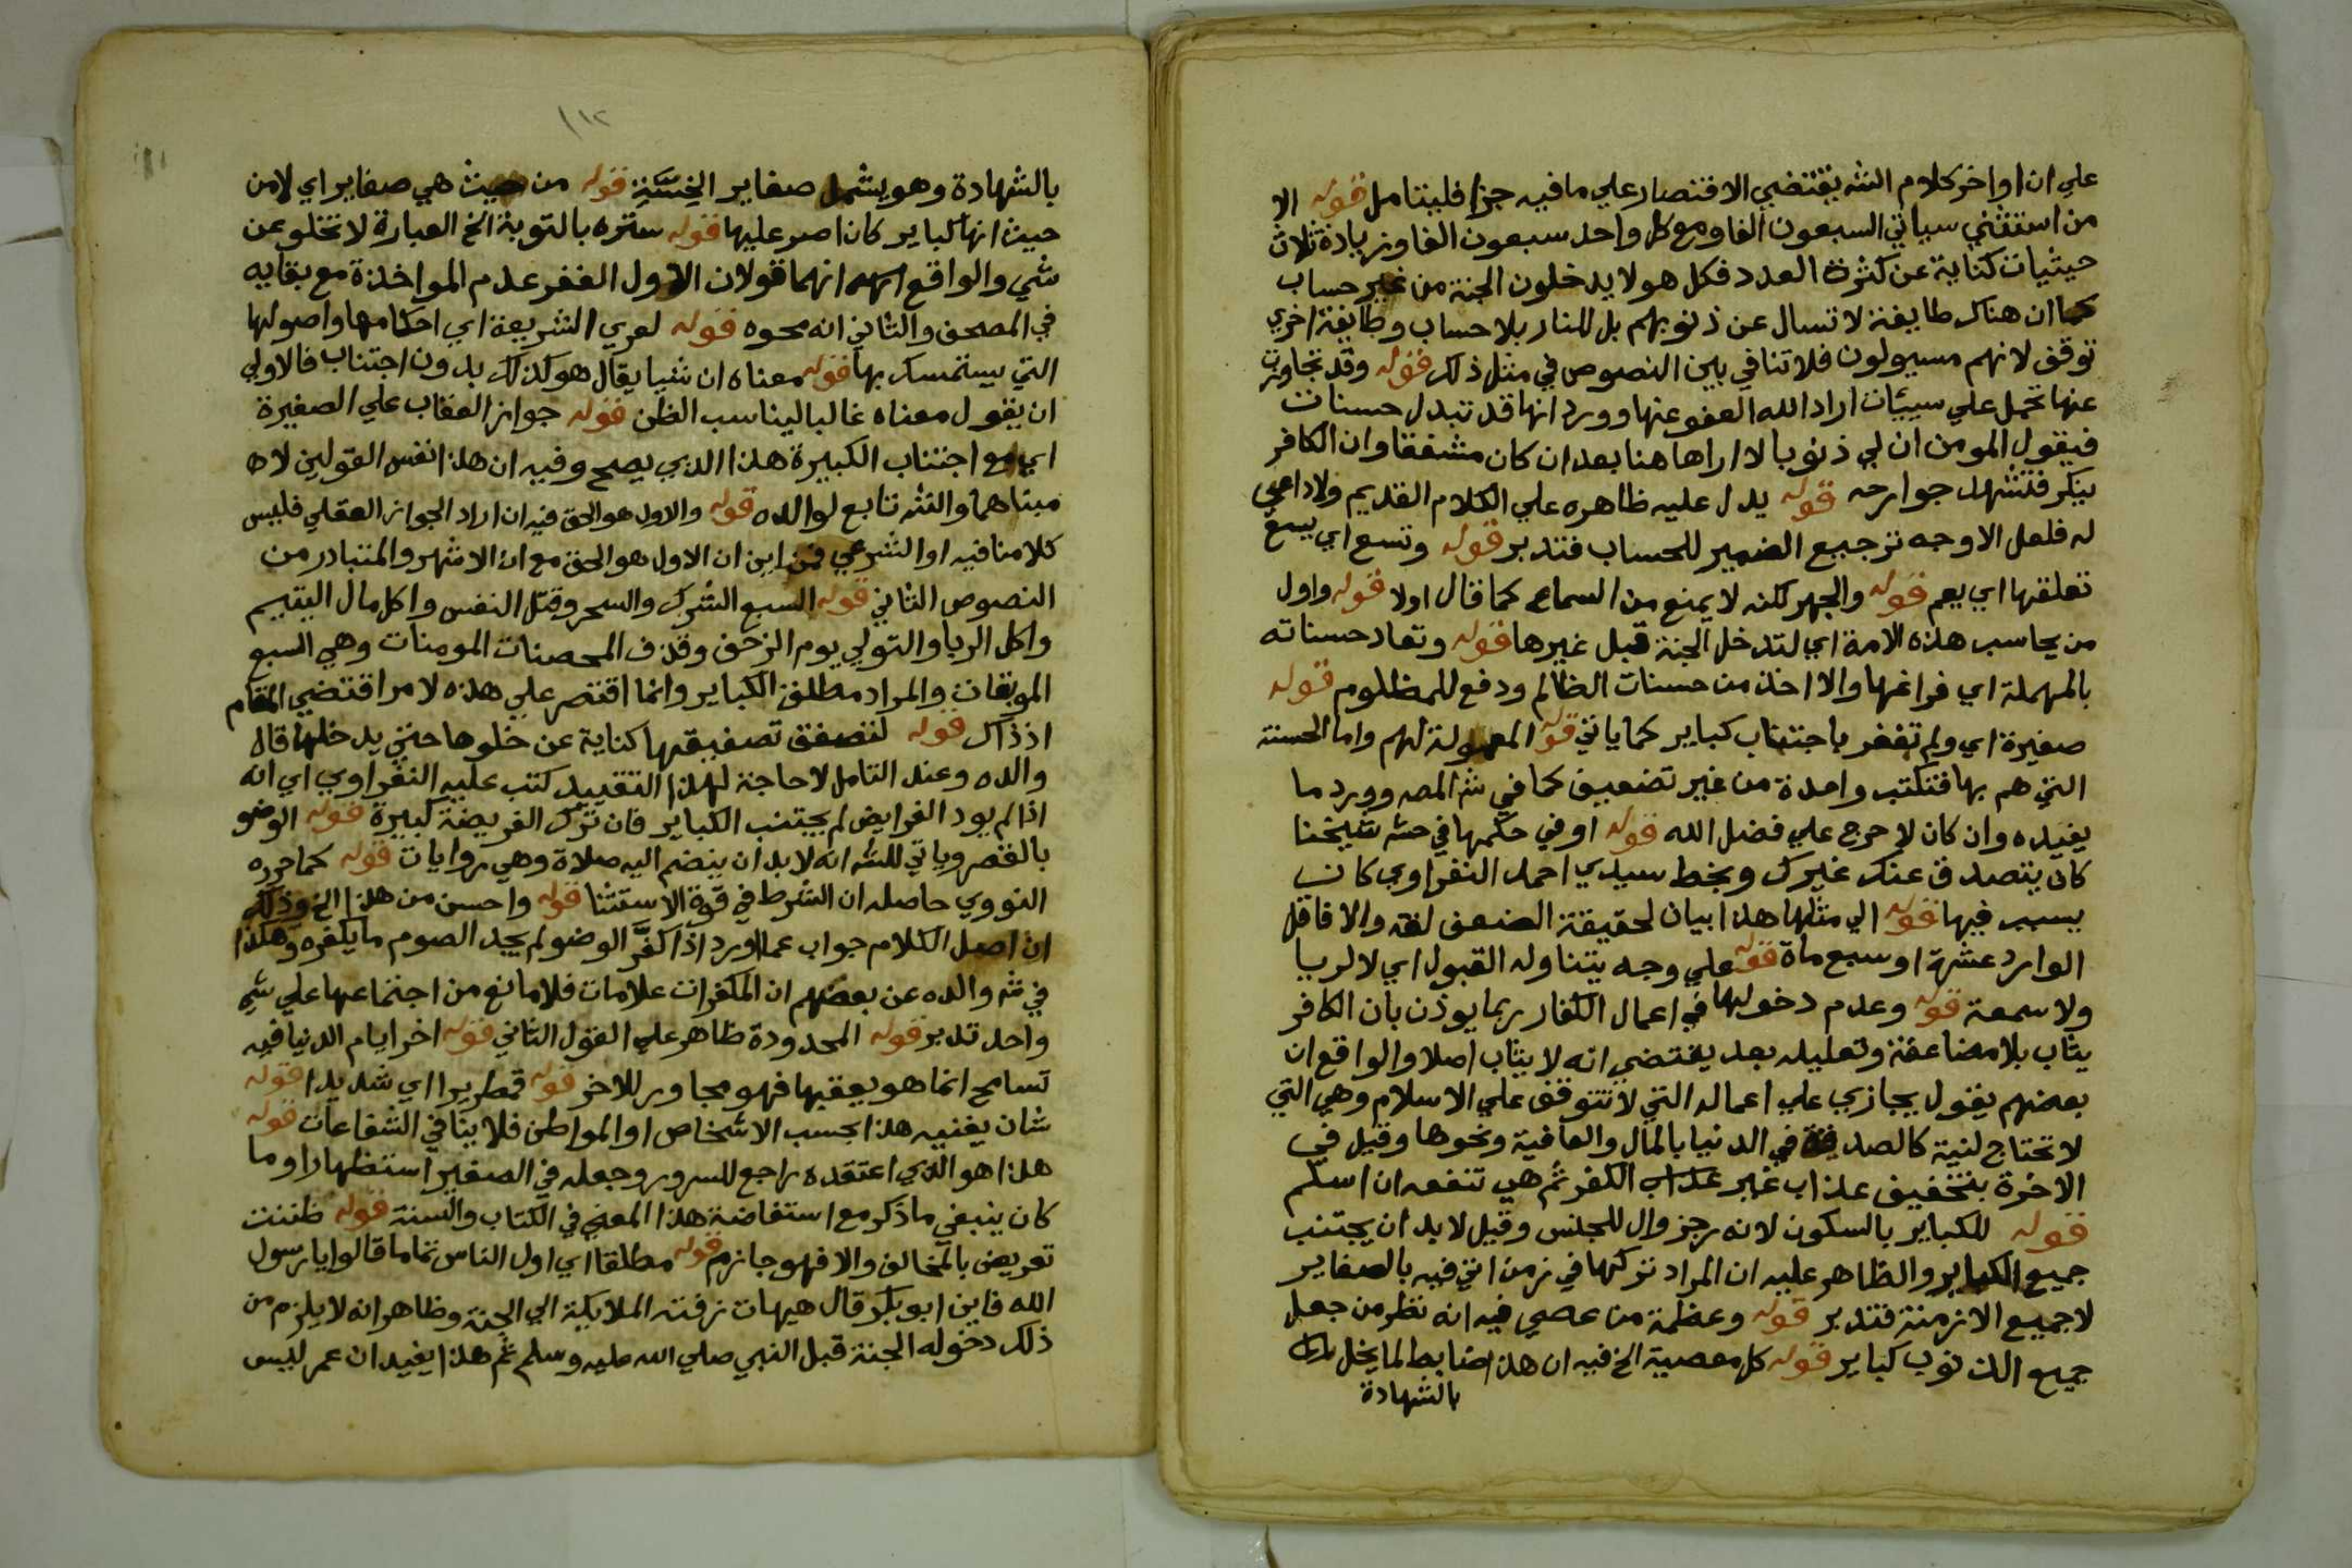 علي ان اواخر كلام الشه يقتضي الاقتصار علي ما فيه جزا فليتامل قوله الا
من استثني سياتي السبعون الفا ومع كل واحد سبعون الفا وزيادة ثلاث
حيثيات كناية عن كثرة العدد فكل هولا يدخلون الجنة من غير حساب
كما ان هناك طايفة لا تسال عن ذنوبهم بل للنار بلا حساب وطايفة اخري
توقف لانهم مسيولون فلا تنافي بين النصوص في مثل ذلك قوله وقد تجاوزت
عنها تحمل علي سييات اراد الله العفو عنها وورد انها قد تبدل حسنات
فيقول المومن ان لي ذنوبا لا اراها هنا بعد ان كان مشفقا وان الكافر
ينكر فتشهد جوارحه قوله يدل عليه ظاهره علي الكلام القديم ولا داعي
له فلعل الاوجه ترجيع الضمير للحساب فتدبر قوله وتسع اي يسع
تعلقها اي يعم قوله والجهر لكنه لا يمنع من السماع كما قال اولا قوله واول
من يحاسب هذه الامة اي لتدخل الجنة قبل غيرها قوله وتعاد حسناته
بالمهملة اي فراغها والا اخذ من حسنات الظالم ودفع للمظلوم قوله
صغيرة اي ولم تغفر باجتناب كباير كما ياتي قوله المعمولة لهم واما الحسنة
التي هم بها فتكتب واحدة من غير تضعيف كما في شه المصه وورد ما
يفيده وان كان لا حرج علي فضل الله قوله او في حكمها في حشه شيخنا
كان يتصدق عنك غيرك وبخط سيدي احمد النفراوي كان
يسبب فيها قوله الي مثلها هذا بيان لحقيقة الضعف لغة والا فاقل
الوارد عشرة او سبع ماة قوله علي وجه يتناوله القبول اي لا لريا
ولا سمعة قوله وعدم دخولها في اعمال الكفار ربما يوذن بان الكافر
يثاب بلا مضاعفة وتعليله بعد يقتضي انه لا يثاب اصلا والواقع ان
بعضهم يقول يجازي علي اعماله التي لا تتوقف علي الاسلام وهي التي
لا تحتاج لنية كالصدقة في الدنيا بالمال والعافية ونحوها وقيل في
الاخرة بتخفيف عذاب غير عذاب الكفر ثم هي تنفعه ان اسلم
قوله للكباير بالسكون لانه رجز وال للجنس وقيل لا بد ان يجتنب
جميع الكباير والظاهر عليه ان المراد تركها في زمن اتي فيه بالصغاير
لا جميع الازمنة فتدبر قوله وعظمة من عصي فيه انه نظر من جعل
جميع الذنوب كباير قوله كل معصية الخ فيه ان هذا ضابط لما يخل
بالشهادة
١١٢
بالشهادة وهو يشمل صغاير الخسة قوله من حيث هي صغاير اي لا من
حيث انها كباير كان اصر عليها قوله ستره بالتوبة الخ العبارة لا تخلو عن
شي والواقع انهما قولان الاول الغفر عدم المواخذة مع بقايه
في المصحف والثاني انه محوه قوله لعري الشريعة اي احكامها واصولها
التي يستمسك بها قوله معناه ان شيا يقال هو كذلك بدون اجتناب فالاولي
ان يقول معناه غالبا ليناسب الظن قوله جواز العقاب علي الصغيرة
اي مع اجتناب الكبيرة هذا الذي يصح وفيه ان هذا نفس القولين لا ه
مبناهما والشه تابع لوالده قوله والاول هو الحق فيه ان اراد الجواز العقلي فليس
كلامنا فيه او الشرعي فمن اين ان الاول هو الحق مع ان الاشهر والمتبادر من
النصوص الثاني قوله السبع الشرك والسحر وقتل النفس واكل مال اليتيم
واكل الربا والتولي يوم الزحف وقذف المحصنات المومنات وهي السبع
الموبقات والمراد مطلق الكباير وانما اقتصر علي هذه لامر اقتضي المقام
اذ ذاك قوله لتصفق تصفيقها كناية عن خلوها حتي يدخلها قال
والده وعند التامل لا حاجة لهذا التقييد كتب عليه النفراوي اي انه
اذا لم يود الفرايض لم يجتنب الكباير فان ترك الفريضة كبيرة قوله الوضو
بالقصر وياتي للشه انه لا بد ان ينضم اليه صلاة وهي روايات قوله كما حرره
النووي حاصله ان الشرط في قوة الاستثنا قوله واحسن من هذا الخ وذلك
ان اصل الكلام جواب عما اورد اذا كفر الوضو لم يجد الصوم ما يكفره وهكذا
في شه والده عن بعضهم ان المكفرات علامات فلا مانع من اجتماعها علي شي
واحد تدبر قوله المحدودة ظاهر علي القول الثاني قوله اخر ايام الدنيا فيه
تسامح انما هو يعقبها فهو مجاور للاخر قوله قمطريرا اي شديدا قوله
شان يغنيه هذا بحسب الاشخاص او المواطن فلا ينافي الشفاعات قوله
هذا هو الذي اعتقده راجع للسرور وجعله في الصغير استظهارا وما
كان ينبغي ما ذكر مع استفاضة هذا المعني في الكتاب والسنة قوله ظننت
تعريض بالمخالف والا فهو جازم قوله مطلقا اي اول الناس تماما قالوا يا رسول
الله فاين ابو بكر قال هيهات زفته الملايكة الي الجنة وظاهر انه لا يلزم من
ذلك دخوله الجنة قبل النبي صلي الله عليه وسلم ثم هذا يفيد ان عمر ليس